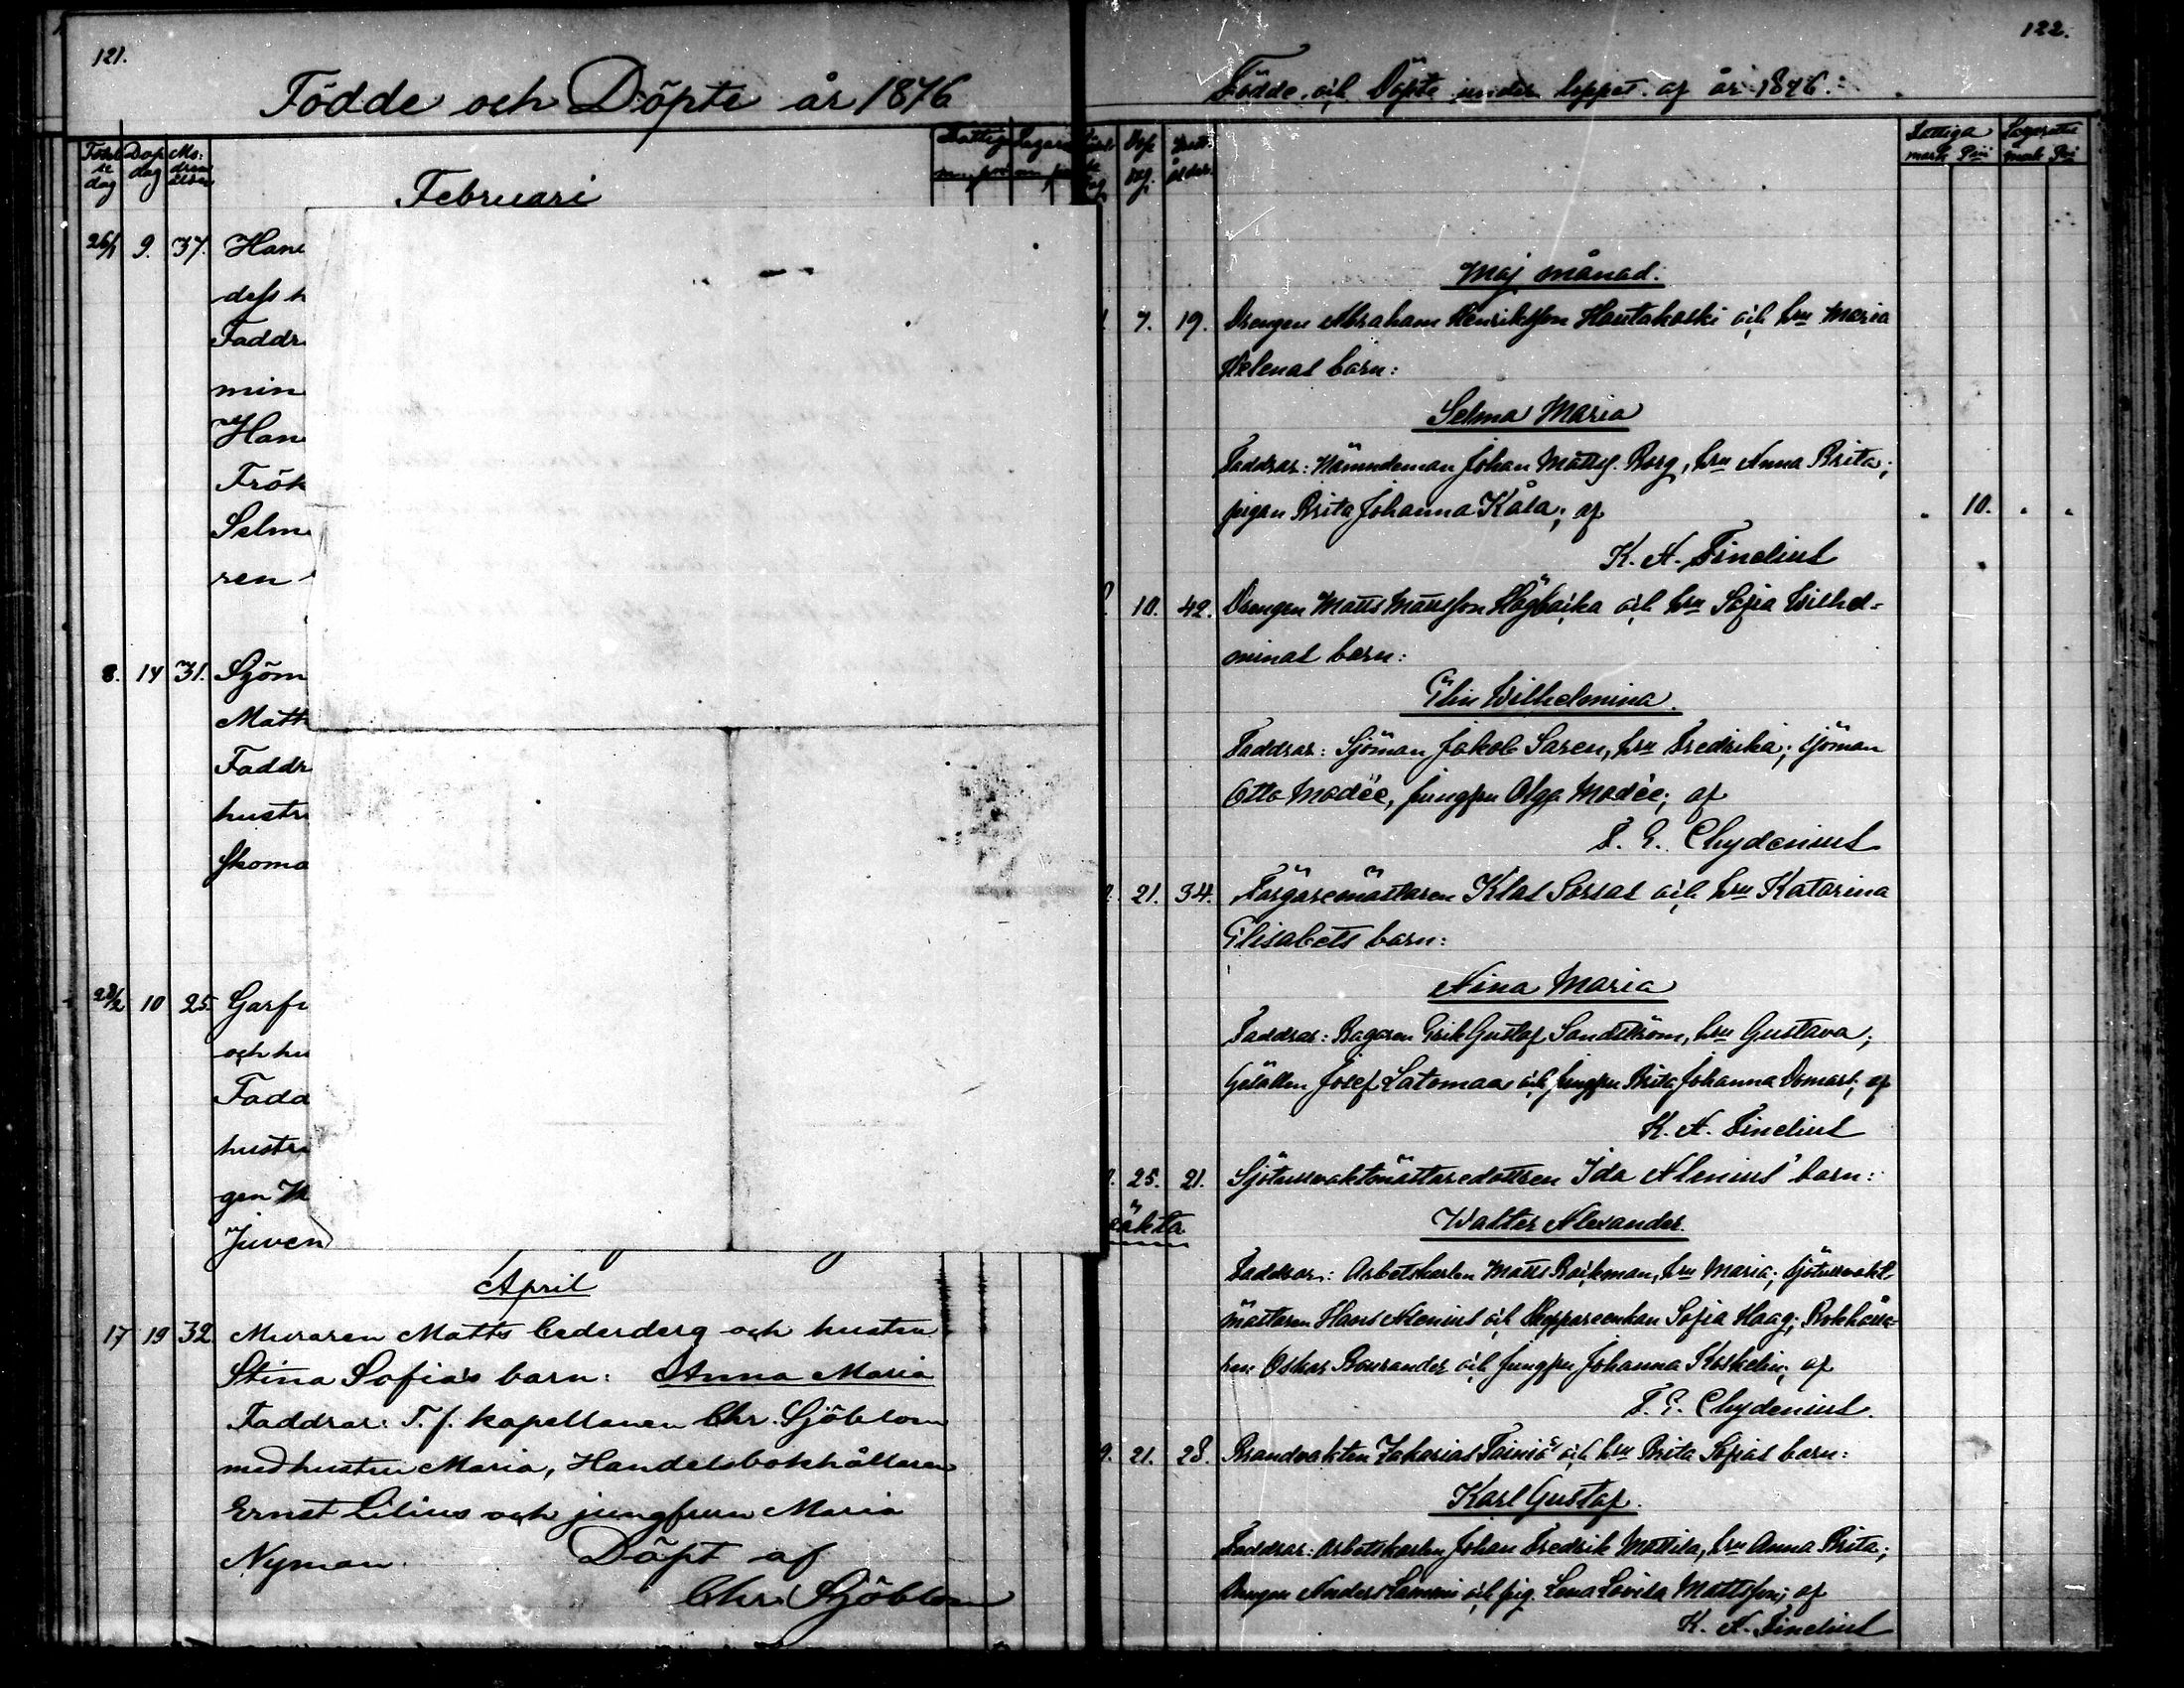 121.
Födde och Döpte år 1876
Födelse dag
Dop dag
Modrens ålder
Fattig
Lagare
Februari
26/1 9. 37. Han
dess h
Faddr
min
Han
Frök
Selm
ren
8. 14 31. Sjöm
Matt
Faddr
hustr
Skoma
28/2 10 25 Garfv
och hu
Fadd
hustr
gen M
Juven
April
17 19 32 Muraren Matts Cederderg och hustru
Stina Sofias barn: Anna Maria
Faddrar: T. f. kapellanen Chr. Sjöblom
med hustru Maria, Handelsbokhållaren
Ernst Lilius och jungfrun Maria
Nyman. Döpt af
Chr. Sjöblom
122.
Födde och Döpte under loppet af år 1876.
Fattiga Lazarette
mark pni mark pni
Maj månad.
7. 19. Drengen Abraham Henriksson Hautakoski och hru Maria
Helenas barn:
Selma Maria
Faddrar: Nämndeman Johan Mattss. Borg, hru Anna Brita;
pigan Brita Johanna Kåla; af
10.
K. A. Finelius
10. 42. Drengen Matts Mattsson Högbacka och hru Sofia Wilhel-
minas barn:
Elin Wilhelmina.
Faddrar: Sjöman Jakob Saren, hru Fredrika; sjöman
Otto Modée, jungfru Olga Modée; af
F. E. Chydenius
21. 34. Färgaremästaren Klas Sorsas och hru Katarina
Elisabets barn:
Nina Maria
Faddrar: Bagaren Erik Gustaf Sandström, hru Gustava;
Gesällen Josef Latomaa och jungfru Brita Johanna Domars; af
K. A. Finelius
25. 21. Sjötullvaktmästaredottren Ida Alenius' barn:
oäkta
Walter Alexander.
Faddrar: Arbetskarlen Matts Backman, hru Maria; Sjötullvakt-
mästaren Hans Alenius och Skeppareenkan Sofia Haag; Bokhålla-
ren Oskar Bonrander och jungfru Johanna Koskelin; af
F. E. Chydenius.
9. 21. 28. Brandvakten Zakarias Tainiö och hru Brita Sofias barn:
Karl Gustaf.
Faddrar: Arbetskarlen Johan Fredrik Mattila, hru Anna Brita;
Drengen Anders Lammi och pig. Lena Lovisa Mattsson; af
K. A. Finelius